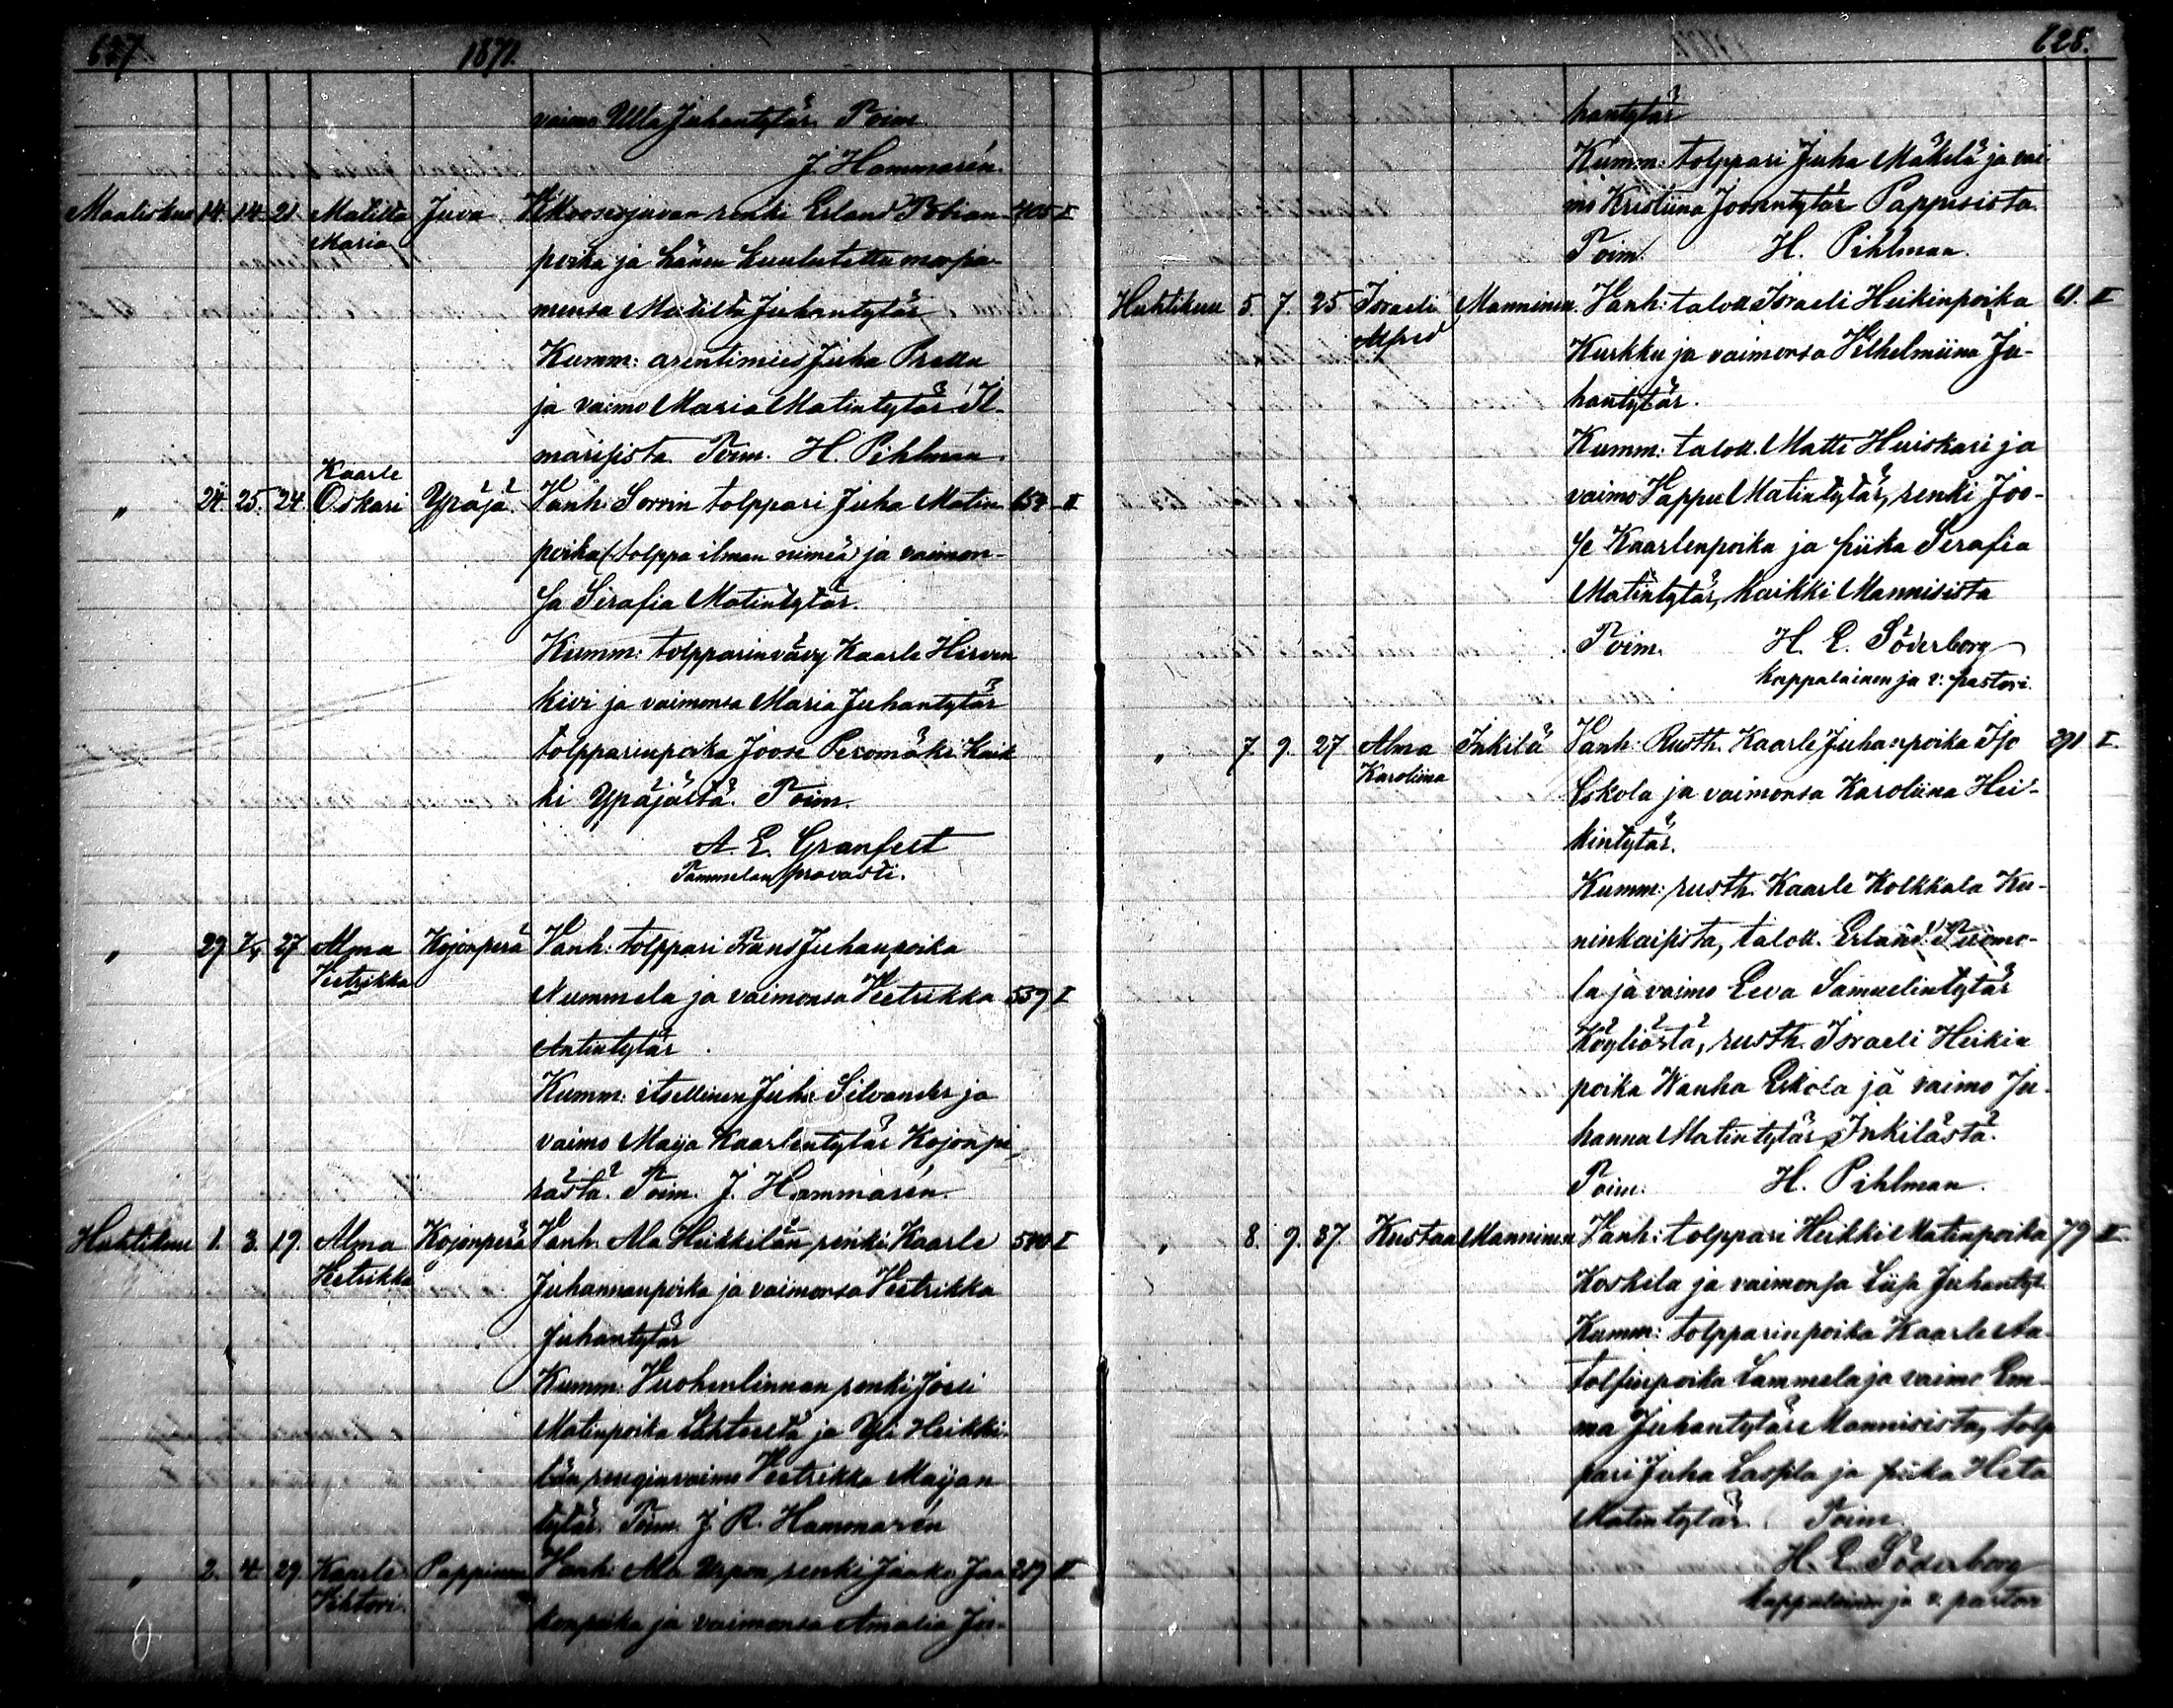 627
1871.
vaimo Ulla Juhantytär. Toim.
J. Hammarén.
Maaliskuu 14. 14. 21. Matilta Juva renki Erland Tobian 405 I
Maria
poika ja hänen kuulutettu morsia-
mensa Matilta Juhantytär
Kumm: arentimies Juha Prattu
ja vaimo Maria Matintytär Il-
marisista. Toim. H. Pihlman.
Kaarle
" 24. 25. 24. Oskari Ypäjä. Vanh: Sorrin tolppari Juha Matin 658 II
poika (tolppa ilman nimeä) ja vaimon-
sa Serafia Matintytär.
Kumm: tolpparinvävy Kaarle Hirven
kivi ja vaimonsa Maria Juhantytär
tolpparinpoika Joose Peromäki Kaik
ki Ypäjältä. Toim.
A. E. Granfelt
Tammelan provasti.
" 29. 27 Alma Kojonperä Vanh: tolppari Frans Juhanpoika
Veetrikka
Nummela ja vaimonsa Veetrikka 559 I
Antintytär.
Kumm: itsellinen Juha Silvander ja
vaimo Maija Kaarlentytär Kojonpe-
rästä. Toim. J. Hammarén.
Huhtikuu 1. 3. 19. Alma Kojonperä Vanh. Ala Heikkilän renki Kaarle 540 I
Veetrikka
Juhannanpoika ja vaimonsa Veetrikka
Juhantytär
Kumm: Vuohenlinnan renki Joeli
Matinpoika ja Yli Heikki-
län renginvaimo Veetrikka Maijan
tytär. Toim. J. R. Hammarén
" 2. 4. 29. Kaarle Pappinen Vanh: Ala Urpon renki Jaako Jaa 219 II
Vihtori.
konpoika ja vaimonsa Amalia Ju-
628.
hantytär
Kumm: tolppari Juha Mäkelä ja vai
mo Kristiina Joosentytär Pappisista.
Toim. H. Pihlman.
Huhtikuu 5. 7. 25 Israeli Manninen. Vanh: taloll Israeli Heikinpoika 61. II
Alfred
Kurkku ja vaimonsa Vilhelmiina Ju-
hantytär.
Kumm: taloll. Matti Huiskari ja
vaimo Vappu Matintytär, renki Joo-
se Kaarlenpoika ja piika Serafia
Matintytär, kaikki Mannisista
Toim. H. E. Söderborg
kappalainen ja v: pastori.
" 7. 9. 27 Alma Inkilä Vanh: Rusth. Kaarle Juhanpoika Iso 391 I.
Karoliina
Eskola ja vaimonsa Karoliina Hei-
kintytär.
Kumm: rusth. Kaarle Kolkkala Ku-
ninkaisista, taloll. Erland Tuomo-
la ja vaimo Eeva Samuelintytär
Köyliöstä, rusth. Israeli Heikin
poika Wanha Eskola ja vaimo Ju-
hanna Matintytär Inkilästä.
Toim: H. Pihlman.
" 8. 9. 37. Kustaa Manninen Vanh: tolppari Heikki Matinpoika 79 II.
Koskela ja vaimonsa Liisa Juhantyt.
Kumm: tolpparinpoika Kaarle Aa-
tolfinpoika Lammela ja vaimo Em-
ma Juhantytär Mannisista, tolp
pari Juha Lassila ja piika Heta
Matintytär. Toim.
H. E. Söderborg
kappalainen ja v. pastori